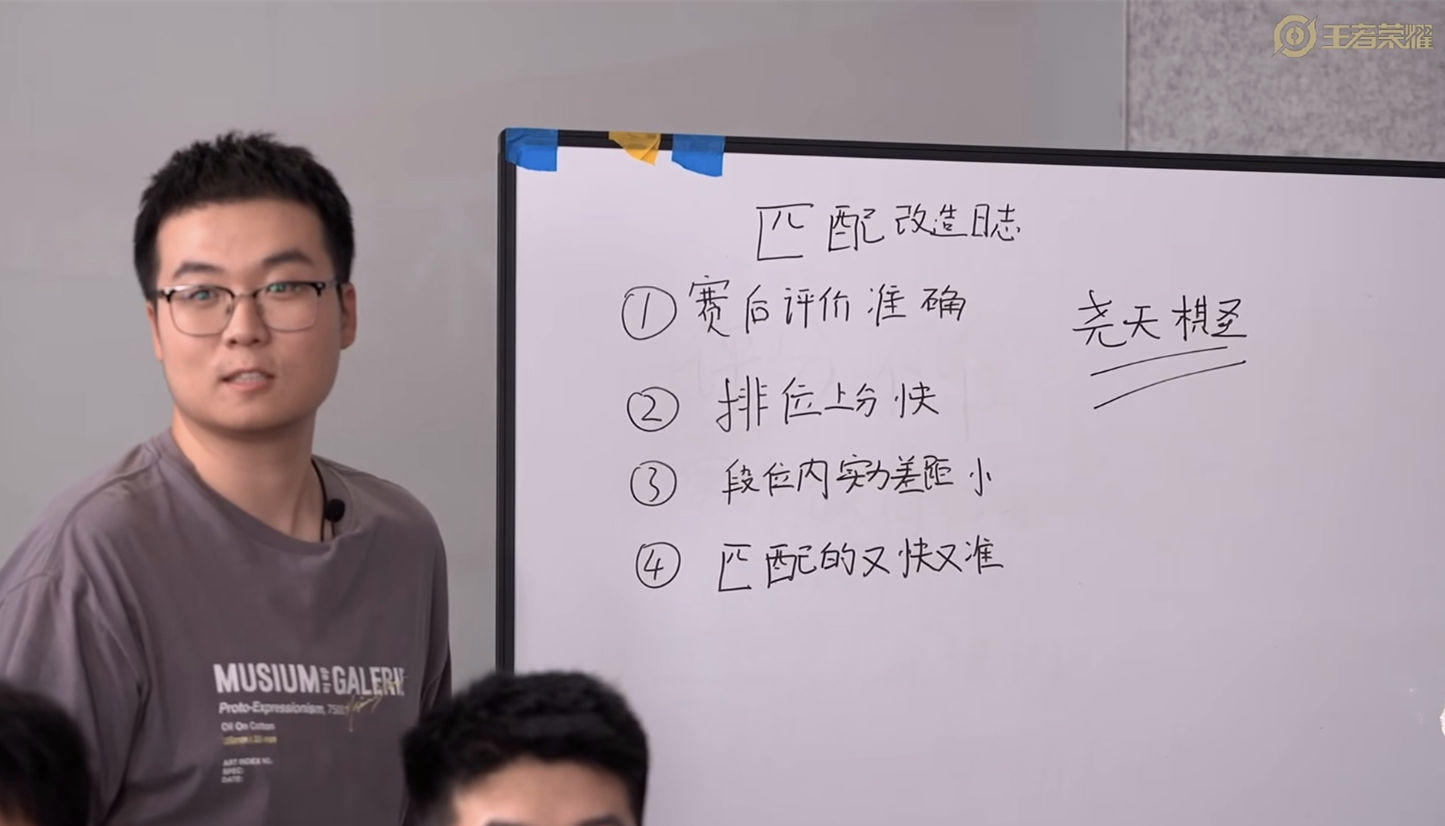 王者荣耀
匹配改造日志
① 赛后评价准确
尧天棋圣
② 排位上分快
③ 段位内实力差距小
④ 匹配的又快又准
MUSIUM GALERIE
Proto-Expressionism,
Oil On Cotton
ART INDEX NO.
SPEC:
DATE: